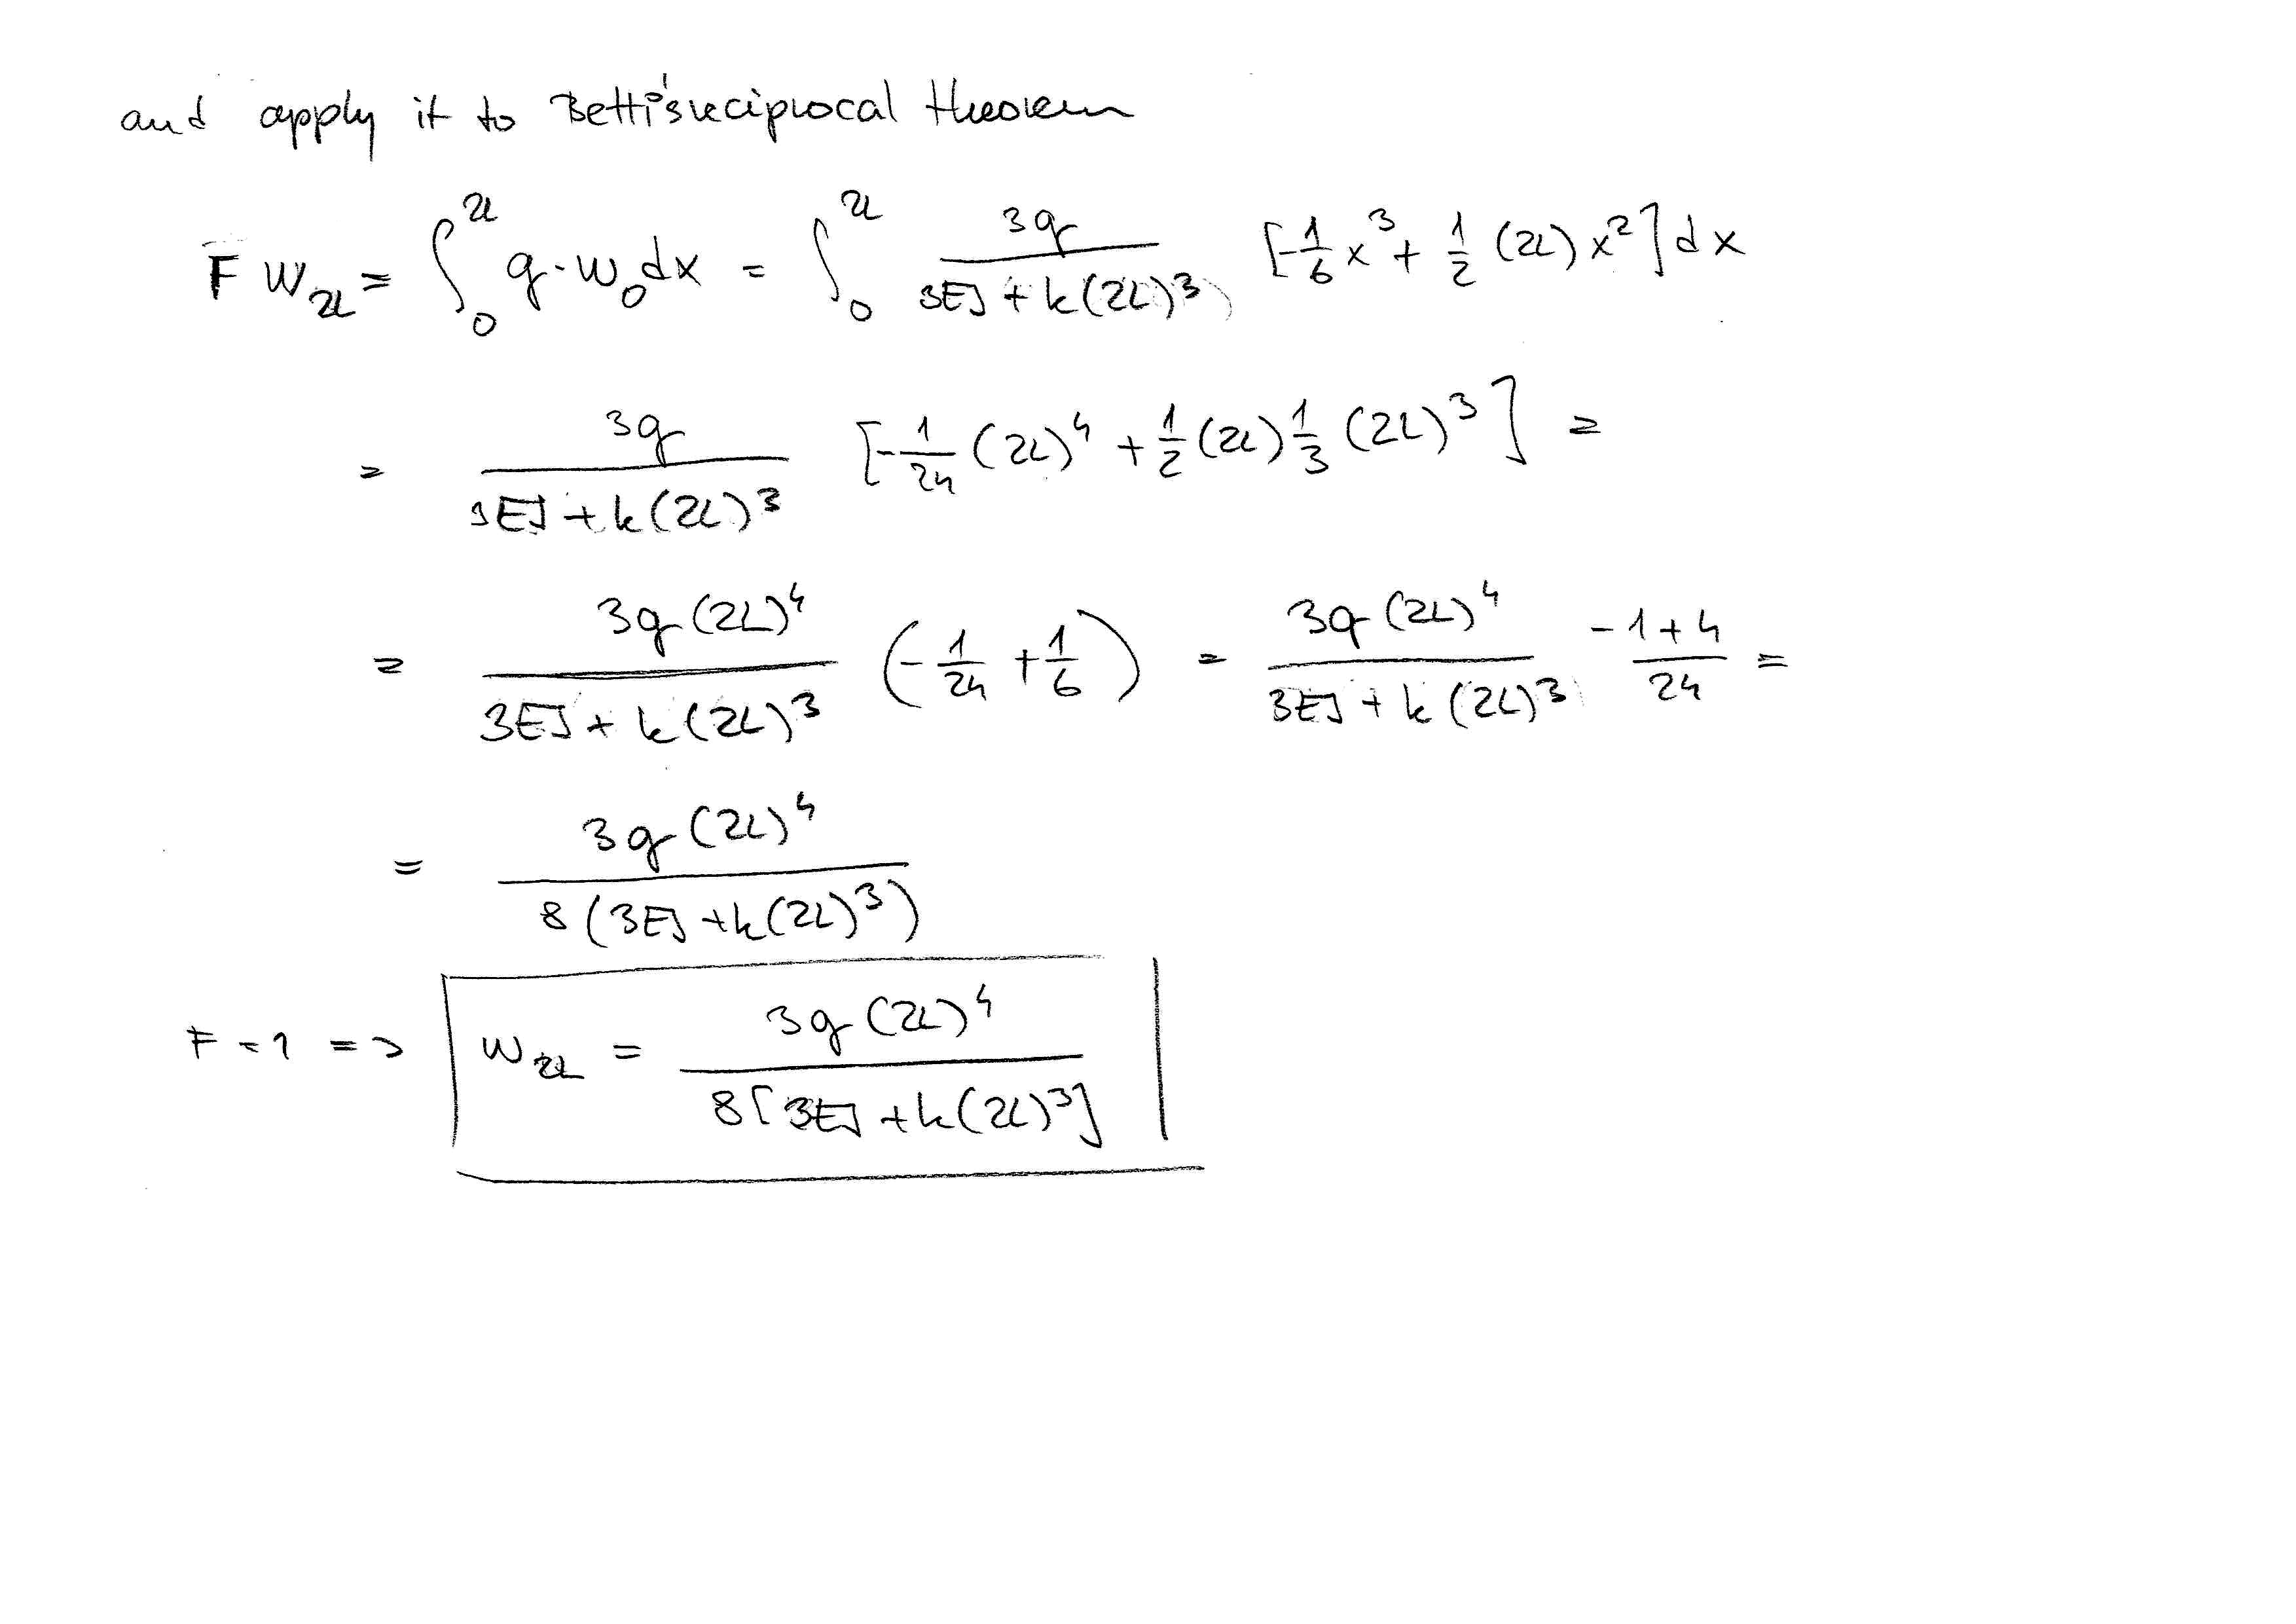 and apply it to Betti's reciprocal theorem
F w_{2L} = ∫_0^{2L} q · w_0 dx = ∫_0^{2L} \frac{3q}{3EJ + k(2L)^3} [-\frac{1}{6} x^3 + \frac{1}{2} (2L) x^2] dx
= \frac{3q}{3EJ + k(2L)^3} [-\frac{1}{24} (2L)^4 + \frac{1}{2} (2L) \frac{1}{3} (2L)^3] =
= \frac{3q (2L)^4}{3EJ + k(2L)^3} (-\frac{1}{24} + \frac{1}{6}) = \frac{3q (2L)^4}{3EJ + k(2L)^3} \frac{-1+4}{24} =
= \frac{3q (2L)^4}{8 (3EJ + k(2L)^3)}
F = 1 => w_{2L} = \frac{3q (2L)^4}{8 [3EJ + k(2L)^3]}